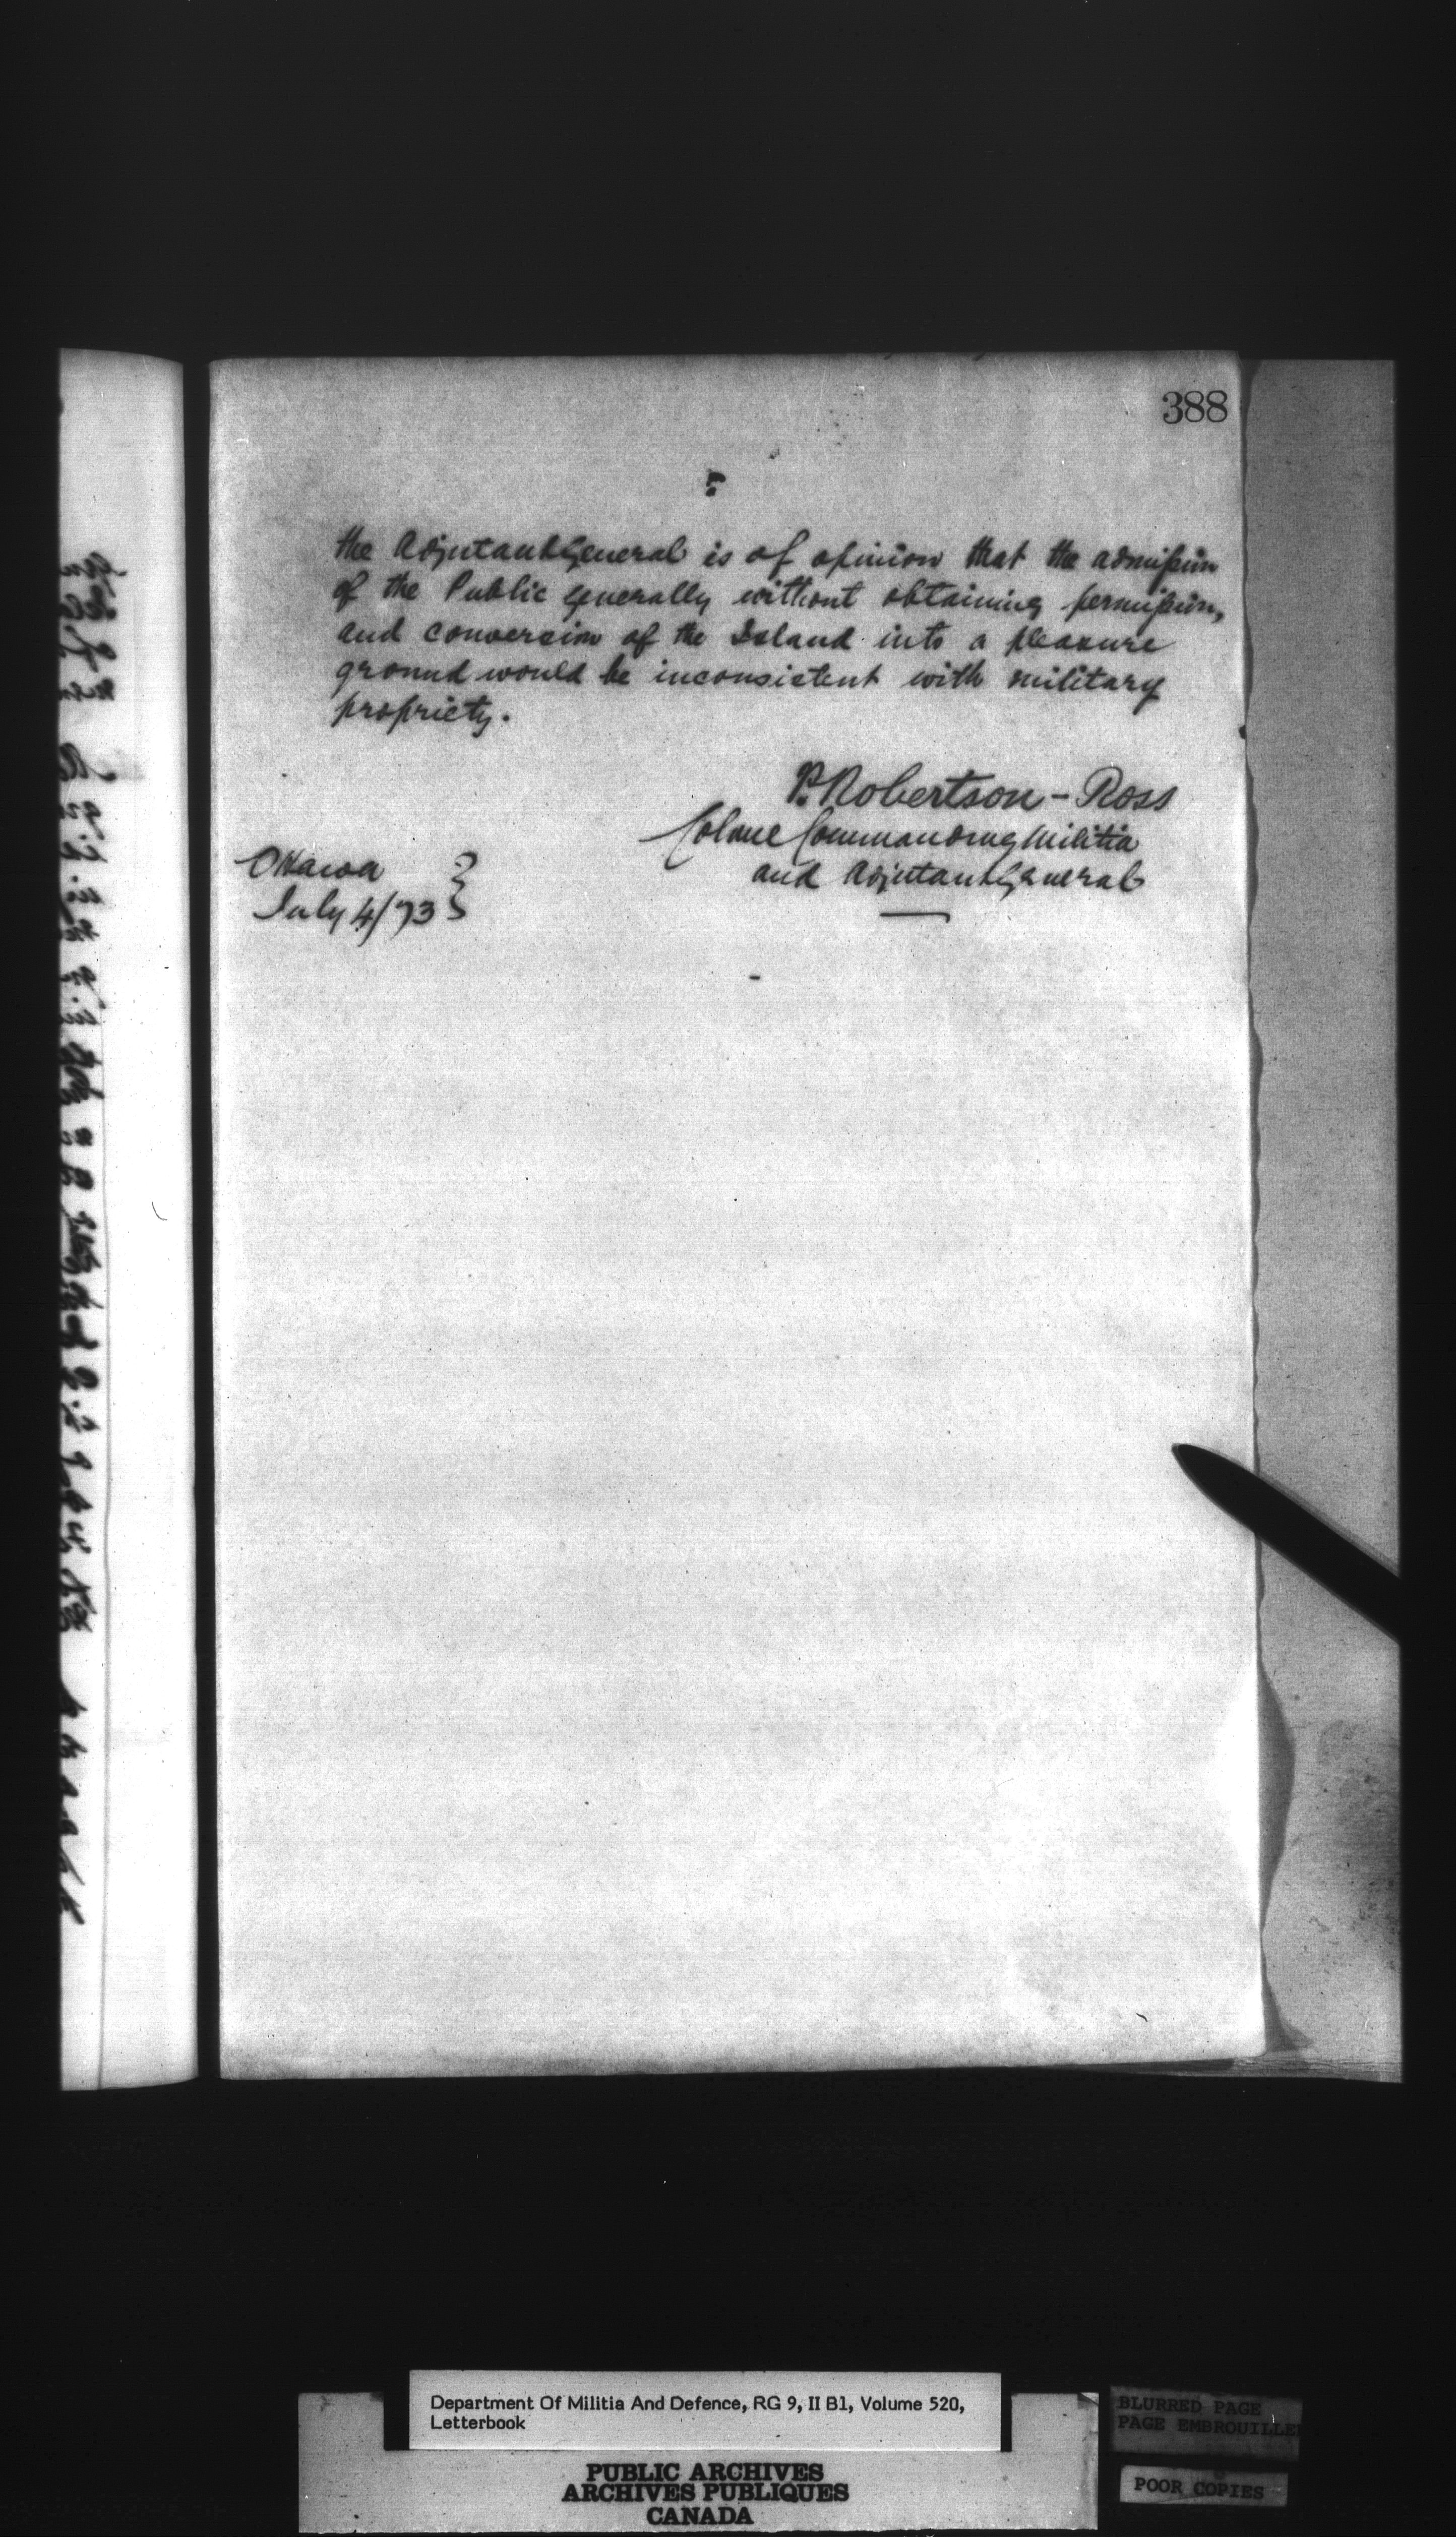 388
the Adjutant General is of opinion that the admission
of the Public generally without obtaining permission,
and conversion of the Island into a pleasure
ground would be inconsistent with military
propriety.
P. Robertson-Ross
Colonel Commanding Militia
and Adjutant General
Ottawa
July 4/73
Department Of Militia And Defence, RG 9, II B1, Volume 520,
Letterbook
PUBLIC ARCHIVES
ARCHIVES PUBLIQUES
CANADA
BLURRED PAGE
PAGE EMBROUILLE
POOR COPIES